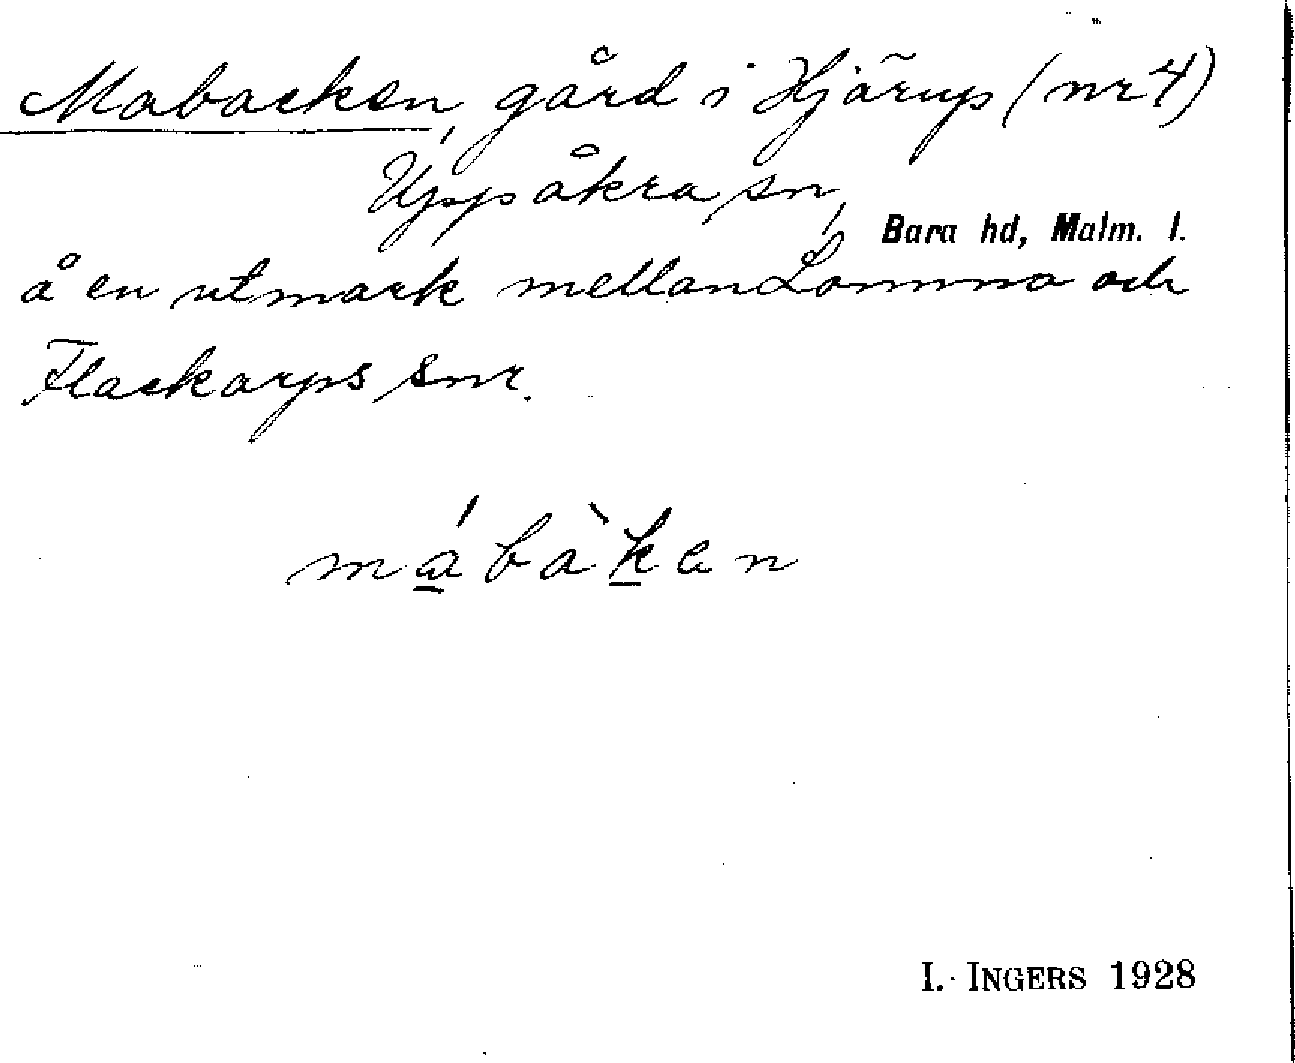 Mabacken, gård i Hjärup (nr 4)
Uppåkra sn,
Bara hd, Malm. l.
å en utmark mellan Lomma och
Flackarps snr.
má̱bàḵen
I. INGERS 1928